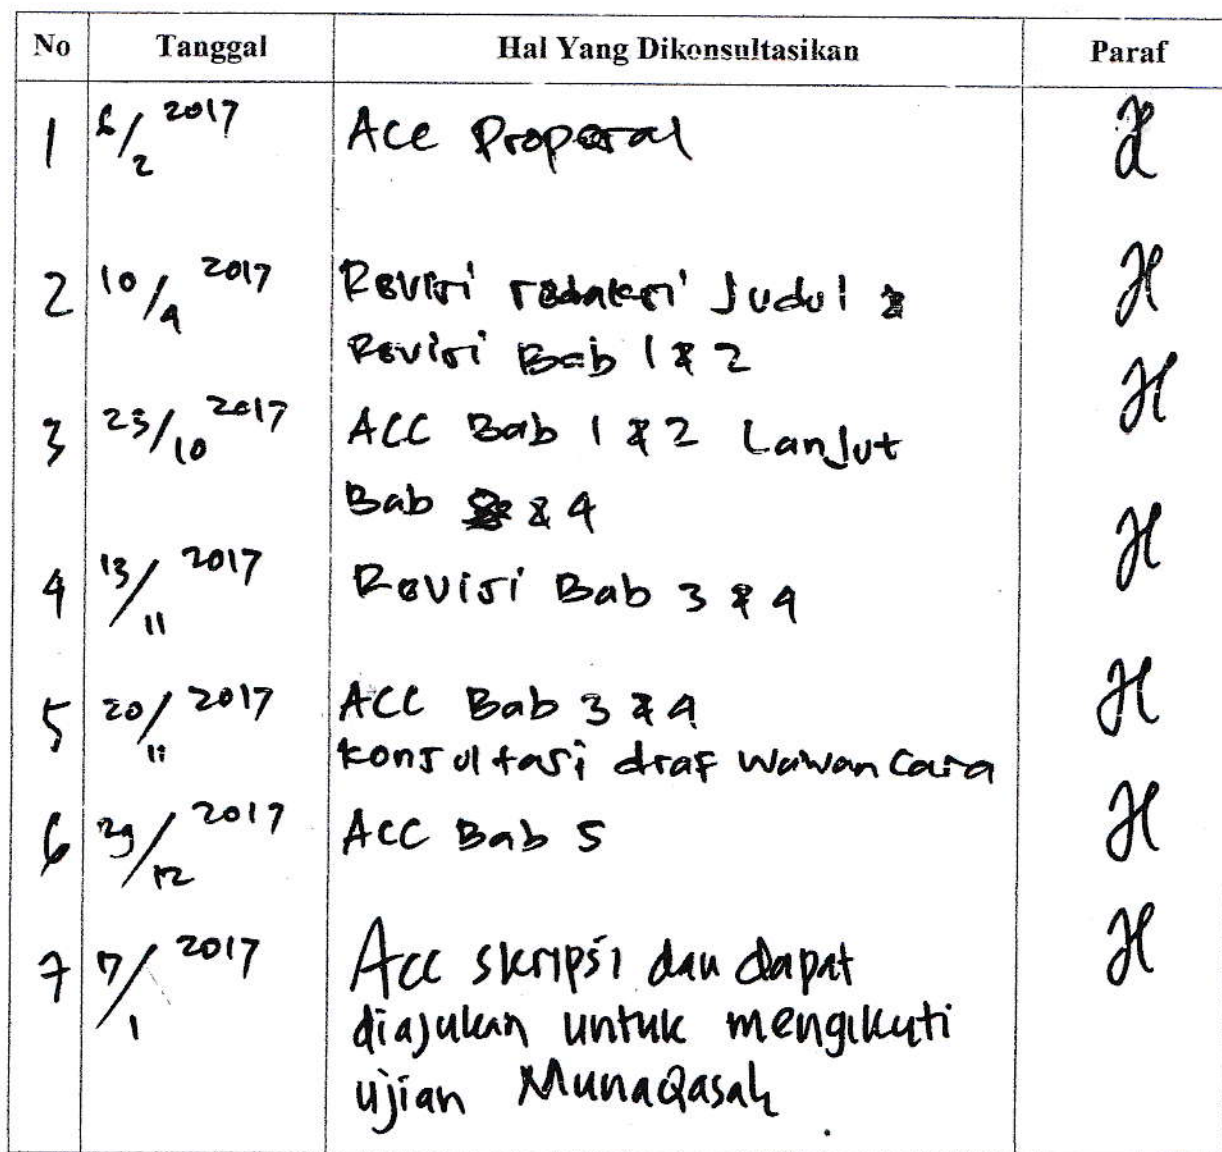 No Tanggal Hal Yang Dikonsultasikan Paraf
1 6/2 2017 Acc Proposal
2 10/9 2017 Revisi redaksi Judul &
Revisi Bab 1 & 2
3 23/10 2017 ACC Bab 1 & 2 Lanjut
Bab 3 & 4
4 13/11 2017 Revisi Bab 3 & 4
5 20/11 2017 ACC Bab 3 & 4
Konsultasi draf wawancara
6 29/12 2017 ACC Bab 5
7 7/1 2017 Acc skripsi dan dapat
diajukan untuk mengikuti
ujian Munaqasah